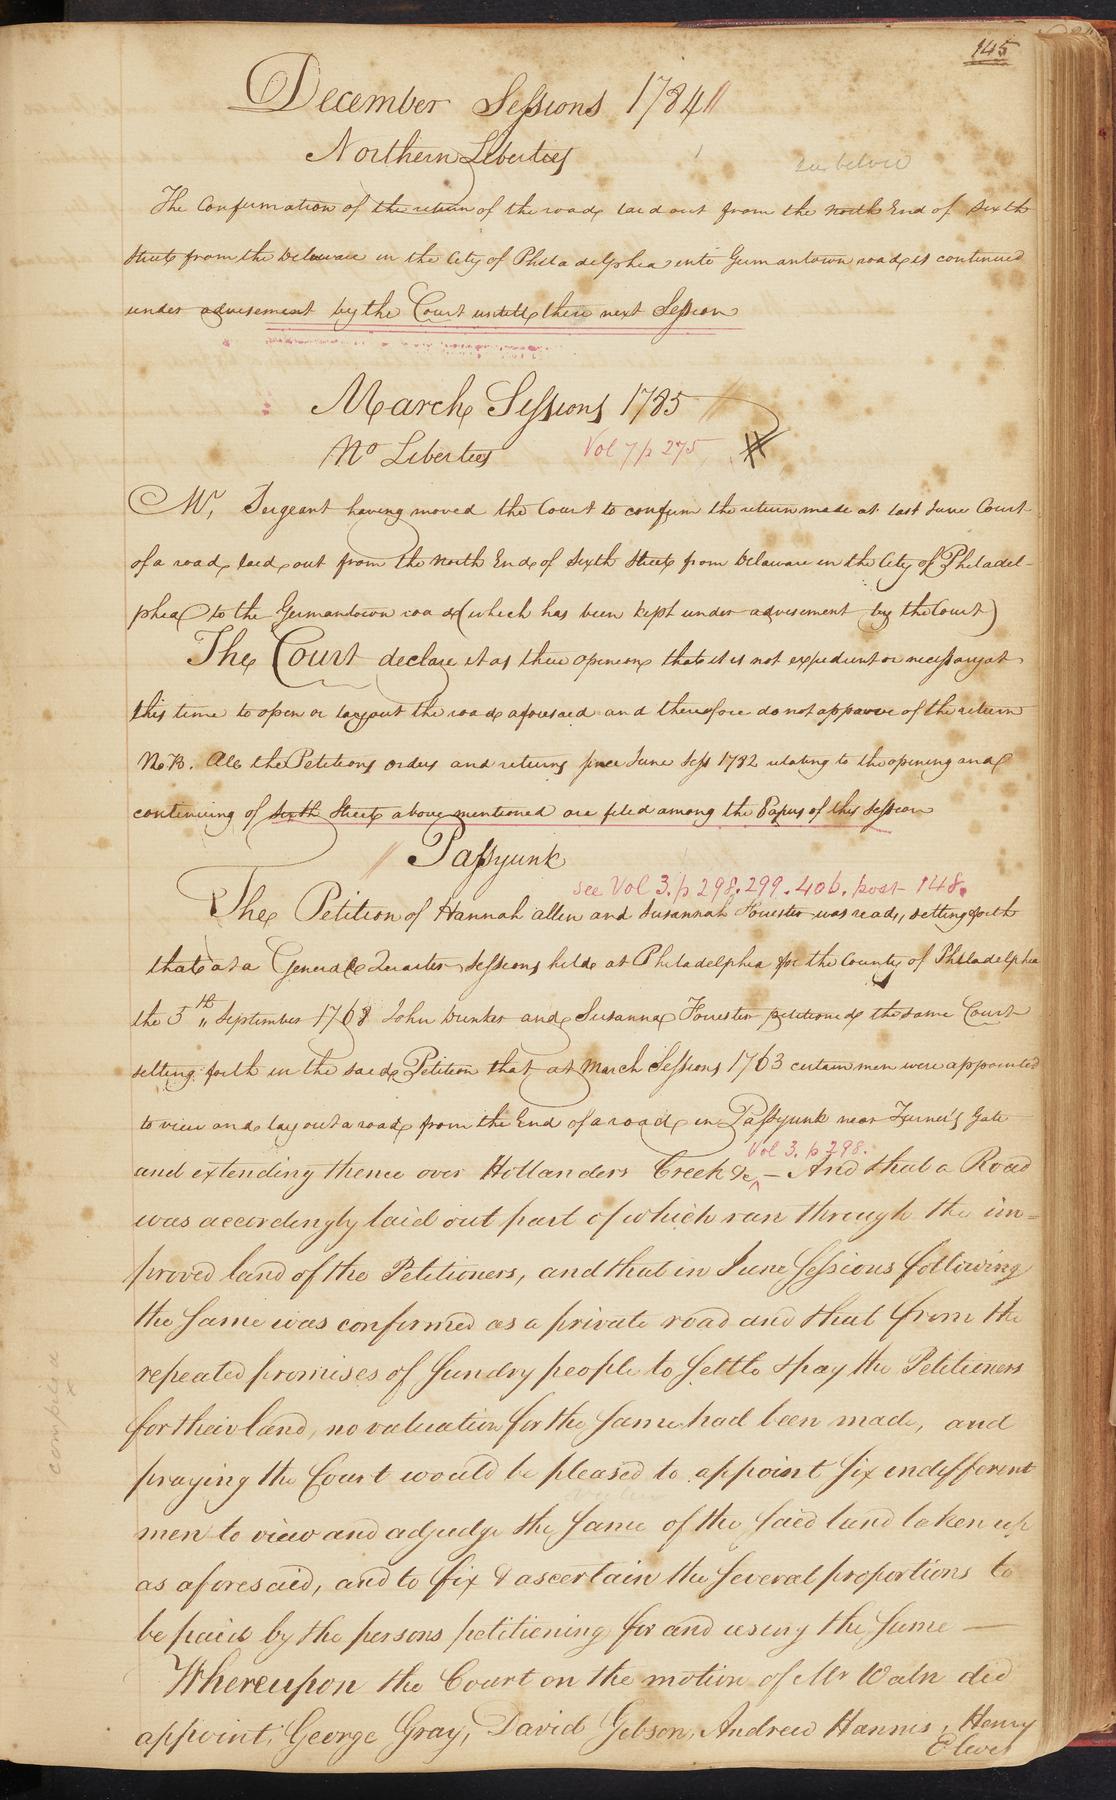 145
December Sessions 1784
Northern Liberties
see below
The Confirmation of the return of the road laid out from the North End of Sixth
Street from the Delaware in the City of Philadelphia into Germantown road is continued
under advisement by the Court untill their next Session
March Sessions 1785
No Liberties Vol 7 p 275 #
Mr, Sergeant having moved the Court to confirm the return made at last June Court
of a road laid out from the North End of Sixth Street from Delaware in the City of Philadel-
phia to the Germantown road (which has been kept under advisement by the Court)
The Court declare it as their opinion that it is not expedient or necessary at
this time to open or lay out the road aforesaid and therefore do not approve of the return
N.B. All the Petitions orders and returns since June Sess 1782 relating to the opening and
continuing of Sixth Street above mentioned are filed among the Papers of this Session
Passyunk
see Vol 3. p 298. 299. 406. post 148.
The Petition of Hannah Allen and Susannah Forrester was read, setting forth
that at a General Quarter Sessions held at Philadelphia for the County of Philadelphia
the 5th September 1768 John Bunker and Susanna Forrester petitioned the same Court
setting forth in the said Petition that at March Sessions 1763 certain men were appointed
to view and lay out a road from the End of a road in Passyunk near Turner's Gate
Vol 3. p 298.
and extending thence over Hollanders Creek &c ^ – And that a Road
was accordingly laid out part of which ran through the im=
proved land of the Petitioners, and that in June Sessions following
the same was confirmed as a private road and that from the
repeated promises of sundry people to settle & pay the Petitioners
for their land, no valuation for the same had been made, and
praying the Court would be pleased to appoint six indifferent
men to view and adjudge the same of the said land taken up
as aforesaid, and to fix & ascertain the several proportions to
be paid by the persons petitioning for and using the same —
Whereupon the Court on the motion of Mr Waln did
appoint, George Gray, David Gibson, Andrew Hannis, Henry
Elwes
compd
x